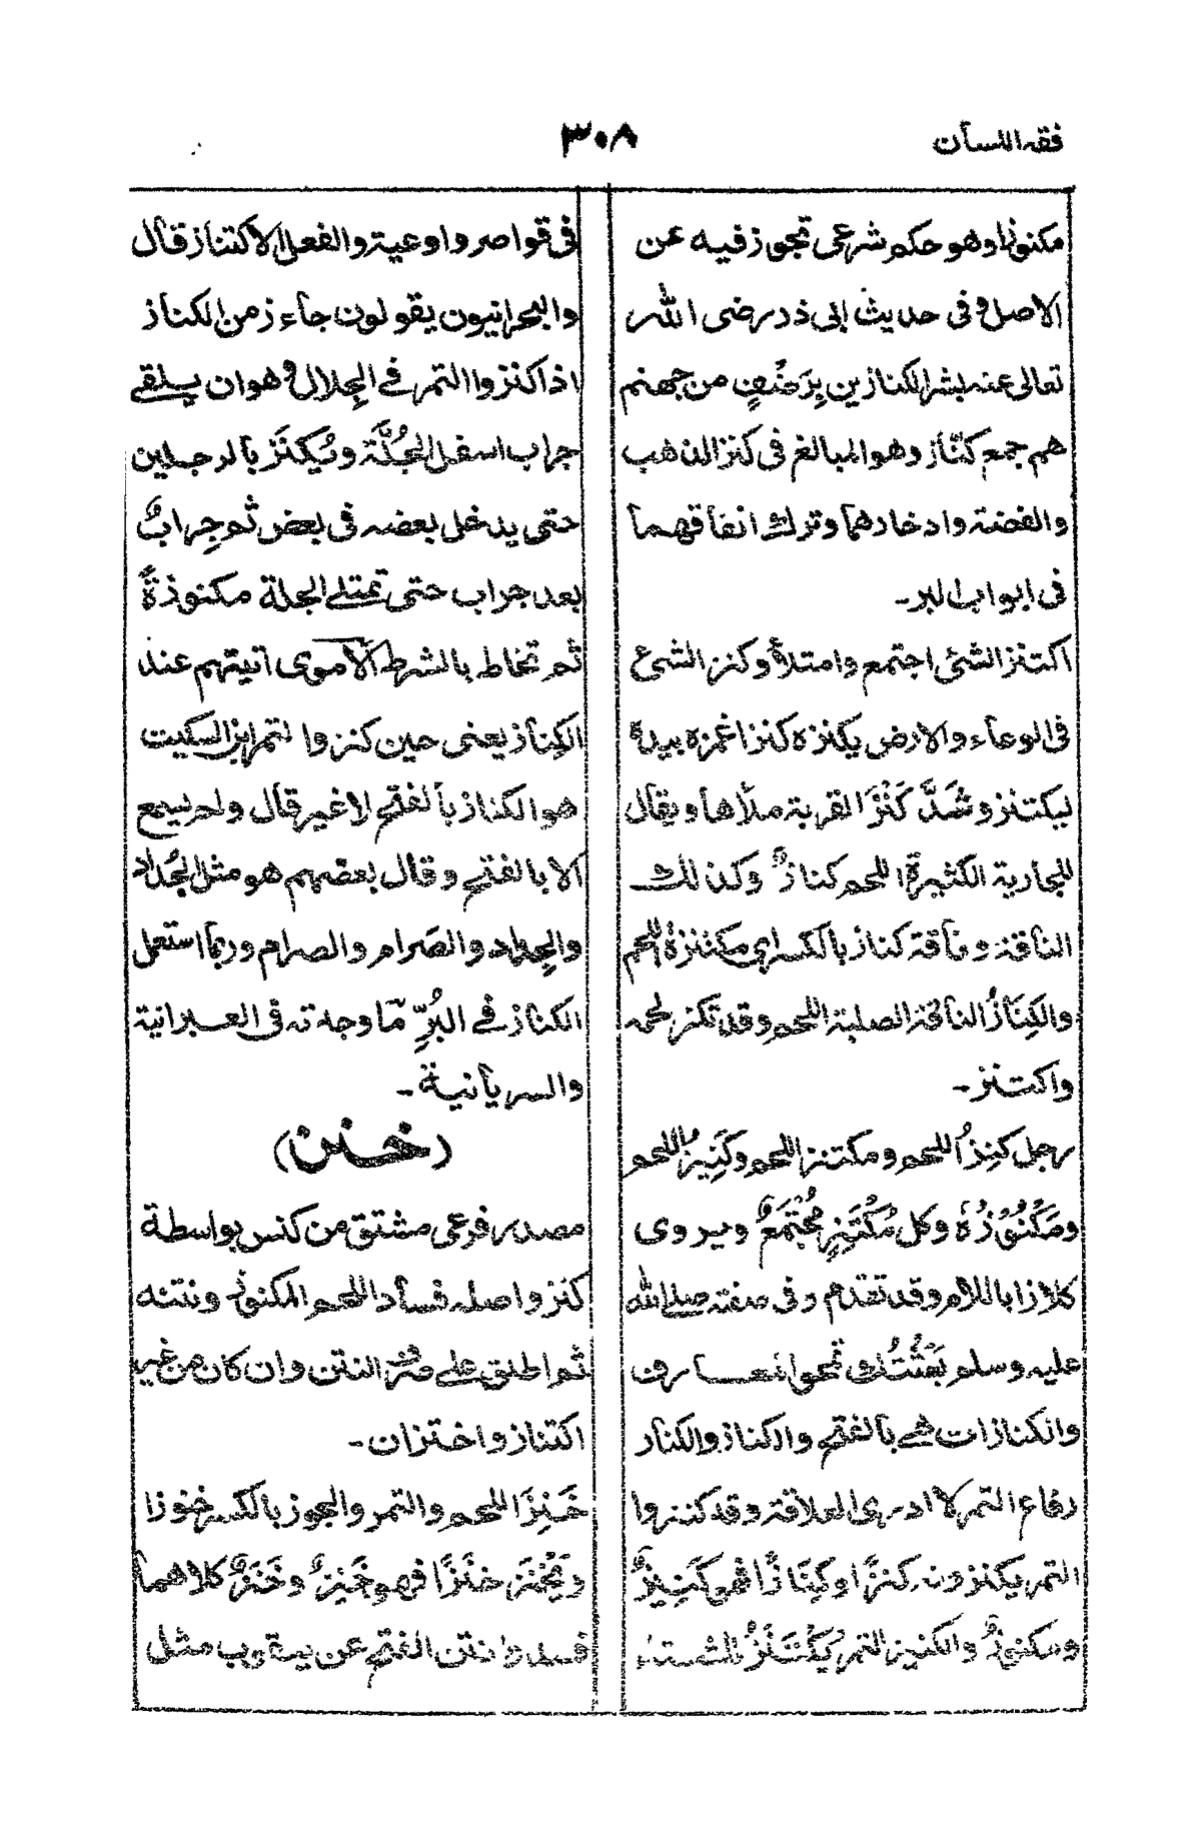 فقه اللسان
٣٠٨
مكنوزا وهو حكم شرعى تجوز فيه عن
الاصل و فى حديث ابى ذر رضى الله
تعالى عنه بشر الكنازين بِرَضْفٍ من جهنم
هم جمع كنّاز وهو المبالغ فى كنز الذهب
والفضة وادخارهما وترك انفاقهما
فى ابواب البر-
اكتنز الشئ اجتمع وامتلأ وكنز الشئ
فى الوعاء والارض يكنزه كنزا غمزه بيده
ليكتنز وشَدَّ كَنْزَ القربة ملأها ويقال
للجارية الكثيرة اللحم كنازٌ وكذلك
الناقة وناقة كناز بالكسر اى مكتنزة اللحم
والكِنَازُ الناقة الصلبة اللحم وقد تكنز لحمه
واكتنز-
رجل كَنِزُ اللحم ومكتنز اللحم وكَنِيزُ اللحم
ومَكْنُوزُهُ وكل مُكْتَنِزٍ مُجْتَمَعٌ ويروى
كلازا باللام وقد تقدم وفى صفته صلى الله
عليه وسلم بَعَثْتُك تمحو المعازف
والكنازات هى بالفتح والكناز والكناز
رفاع التمر لا ادرى العلاقة وقد كنزوا
التمر يكنزونه كنزًا وكِنَازًا فهو كَنِيزٌ
ومكنوزٌ والكنيز التمر يُكْتَنَزُ للشتاء
فى قواصر واوعية والفعل الاكتناز قال
والبحرانيون يقولون جاء زمن الكناز
اذا كنزوا التمر فى الجِلال و هو ان يلقى
جراب اسفل الجُلَّة ويُكنَز بالرجلين
حتى يدخل بعضه فى بعض ثم جِرابٌ
بعد جراب حتى تمتلى الجلة مكنوزةً
ثم تخاط بالشرط الأموى اتيتهم عند
الكِناز يعنى حين كنزوا التمر ابن السكيت
هو الكناز بالفتح لا غير قال ولم يسمع
الا بالفتح وقال بعضهم هو مثل الجَداد
والجِداد والصَرام والصرام وربما استعمل
الكناز فى البُرِّ ما وجدته فى العبرانية
والسريانية-
(خنز)
مصدر فرعى مشتق من كنس بواسطة
كنز واصله فساد اللحم المكنوز ونتنه
ثم اطلق على النتن وان كان من غير
اكتناز واختزان-
خَنِزَ اللحم والتمر والجوز بالكسر خنوزا
ويَخْنَز خَنَزًا فهو خَنِزٌ وخَنَزٌ كلاهما
فسد و نتن الفتح عن يعقوب مثل